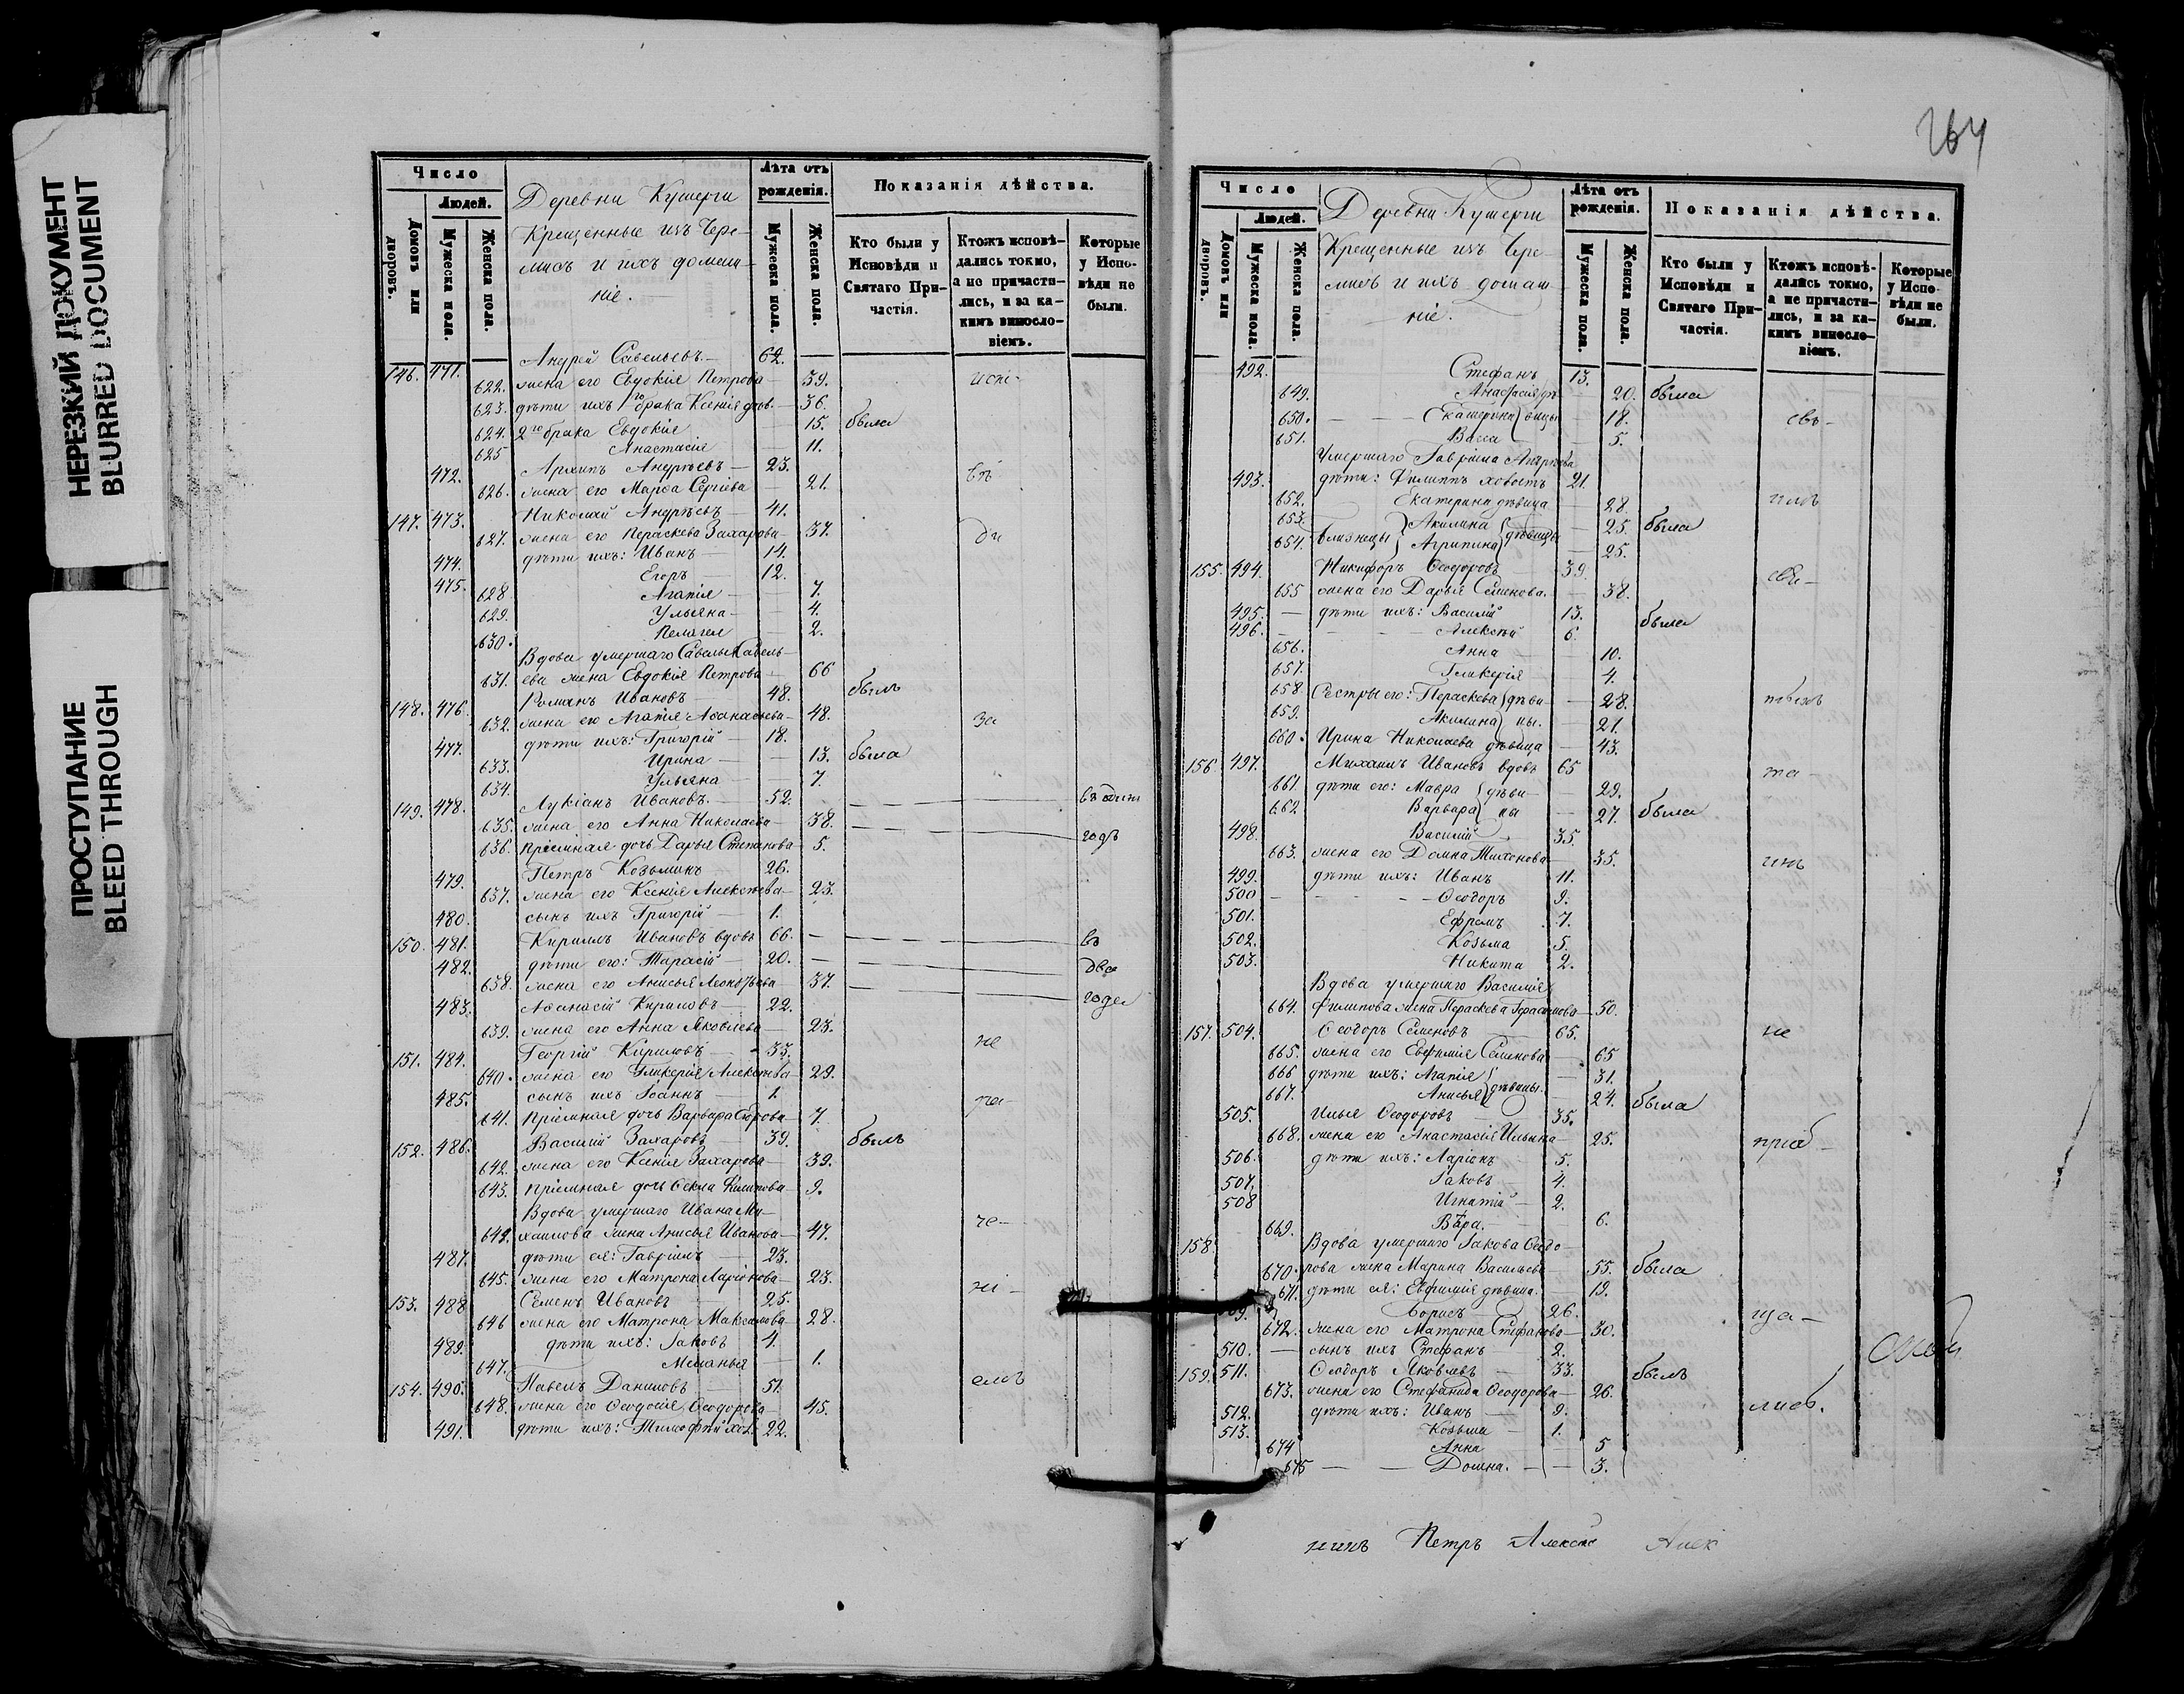 НЕРЕЗКИЙ ДОКУМЕНТ
BLURRED DOCUMENT
ПРОСТУПАНИЕ
BLEED THROUGH
Число
Людей.
Домовъ или дворовъ.
Мужеска пола.
Женска пола.
Деревни Кушерги
Крещенные изъ Чере-
мисъ и ихъ домаш-
ніе.
Лѣта отъ рожденія.
Мужеска пола.
Женска пола.
Показанія дѣйства.
Кто были у Исповѣди и Святаго При-частія.
Ктожъ исповѣ-дались токмо, а не причасти-лись, и за ка-кимъ винослo-віемъ.
Которые у Испо-вѣди не были.
146. 471. Андрей Савельевъ 62.
622. жена его Евдокія Петрова 39. испо-
623. дѣти ихъ 1го брака Ксенія дѣв. 36.
624. 2го брака Евдокія 15. была
625 Анастасія 11.
472. Архипъ Андрѣевъ 23.
626. жена его Марѳа Сергіева 21. вѣ
147. 473. Николай Андрѣевъ 41.
627. жена его Пераскева Захарова 37. ди
474. дѣти ихъ: Иванъ 14.
475. Егоръ 12.
628 Агапія 7.
629. Ульяна 4.
630. Пелагея 2.
Вдова умершаго Савелья Савель-
631. ева жена Евдокія Петрова 66
148. 476. Романъ Ивановъ 48. былъ
632. жена его Агапія Аѳанасьева 48. за
477. дѣти ихъ: Григорій 18.
633. Ирина 13. была
634. Ульяна 7.
149. 478. Лукіанъ Ивановъ. 52. въ одинъ
635. жена его Анна Николаева 38. годъ
636. пріемная дочь Дарья Степанова 5.
479. Петръ Козьминъ 26.
637. жена его Ксенія Алексѣева 23.
480. сынъ ихъ Григорій 1.
150. 481. Кириллъ Ивановъ вдовъ 66. въ
482. дѣти его: Тарасій 20. два
638. жена его Анисья Леонтьева 37. года
483. Аѳанасій Кириловъ 22.
639. жена его Анна Яковлева 23. не
151. 484. Георгій Кириловъ 33.
640. жена его Гликерія Алексѣева 29.
485. сынъ ихъ Іоаннъ 1.
641. пріемная дочь Варвара 7.
152. 486. Василій Захаровъ 39. былъ
642. жена его Ксенія Захарова 39.
643. пріемная дочь Ѳекла 9.
Вдова умершаго Ивана Ми-
644. хаилова жена Анисья Иванова 47. че-
487. дѣти ея: Гавріилъ 23.
645. жена его Матрона Ларіонова 23. ні-
153. 488 Семенъ Ивановъ 25.
646 жена его Матрона Максимова 28.
489. дѣти ихъ: Іаковъ 4.
647. Меланья 1.
154. 490. Павелъ Даниловъ 51. емъ
648. жена его Ѳеодосія Ѳеодорова 45.
491. дѣти ихъ: Тимоѳей хол. 22.
264
Число
Людей.
Домовъ или дворовъ.
Мужеска пола.
Женска пола.
Деревни Кушерги
Крещенные изъ Чере-
мисъ и ихъ домаш-
ніе.
Лѣта отъ рожденія.
Мужеска пола.
Женска пола.
Показанія дѣйства.
Кто были у Исповѣди и Святаго При-частія.
Ктожъ исповѣ-дались токмо, а не причасти-лись, и за ка-кимъ винослo-віемъ.
Которые у Испо-вѣди не были.
492. Стефанъ 13.
649. Анастасія дѣ- 20. была
650. Екатерина вицы 18. свъ-
651. Васса 5.
Умершаго Гавріила Андрѣева
493. дѣти: Филиппъ холостъ 21.
652. Екатерина дѣвица 28.
653. Акилина 25. была
654. близнецы Агрипина дѣвицы 25.
155. 494. Никифоръ Ѳеодоровъ 39.
655 жена его Дарья Семенова. 38.
495. дѣти ихъ: Василій 13. была
496. Алексѣй 6.
656. Анна 10.
657. Гликерія 4.
658. Сестры его: Пераскева дѣви- 28.
659. Акилина цы. 21.
660. Ирина Николаева дѣвица 43.
156. 497. Михаилъ Ивановъ вдовъ 65 та-
661. дѣти его: Мавра дѣви- 29.
662 Варвара цы 27. была
498. Василій 35.
663. жена его Домна Тихонова 35.
499. дѣти ихъ: Иванъ 11.
500 Ѳеодоръ 9.
501. Ефремъ 7.
502. Козьма 5.
503. Никита 2.
Вдова умершаго Василія
664. Филипова жена Пераскева Герасимова 50.
157. 504. Ѳеодоръ Семеновъ 65. не
665. жена его Евфимія Семенова 65
666 дѣти ихъ: Агапія 31.
667. Анисья дѣвицы. 24. была
505. Илья Ѳеодоровъ 35.
668. жена его Анастасія Ильина 25. пріоб-
506. дѣти ихъ: Ларіонъ 5.
507. Іаковъ 4.
508 Игнатій 2.
669. Вѣра. 6.
158 Вдова умершаго Іакова Ѳеодо-
670. рова жена Марина Васильева 55. была
671. дѣти ея: Евфимія дѣвица. 19.
509. Борисъ 26. ща-
672. жена его Матрона Стефанова 30.
510. сынъ ихъ Стефанъ 2.
159. 511. Ѳеодоръ Яковлевъ 33. былъ
673. жена его Стефанида Ѳеодорова 26.
512. дѣти ихъ: Иванъ 9. лись.
513. Козьма 1.
674 Анна 5
675 Домна. 3.
Петръ Алексѣ Алек